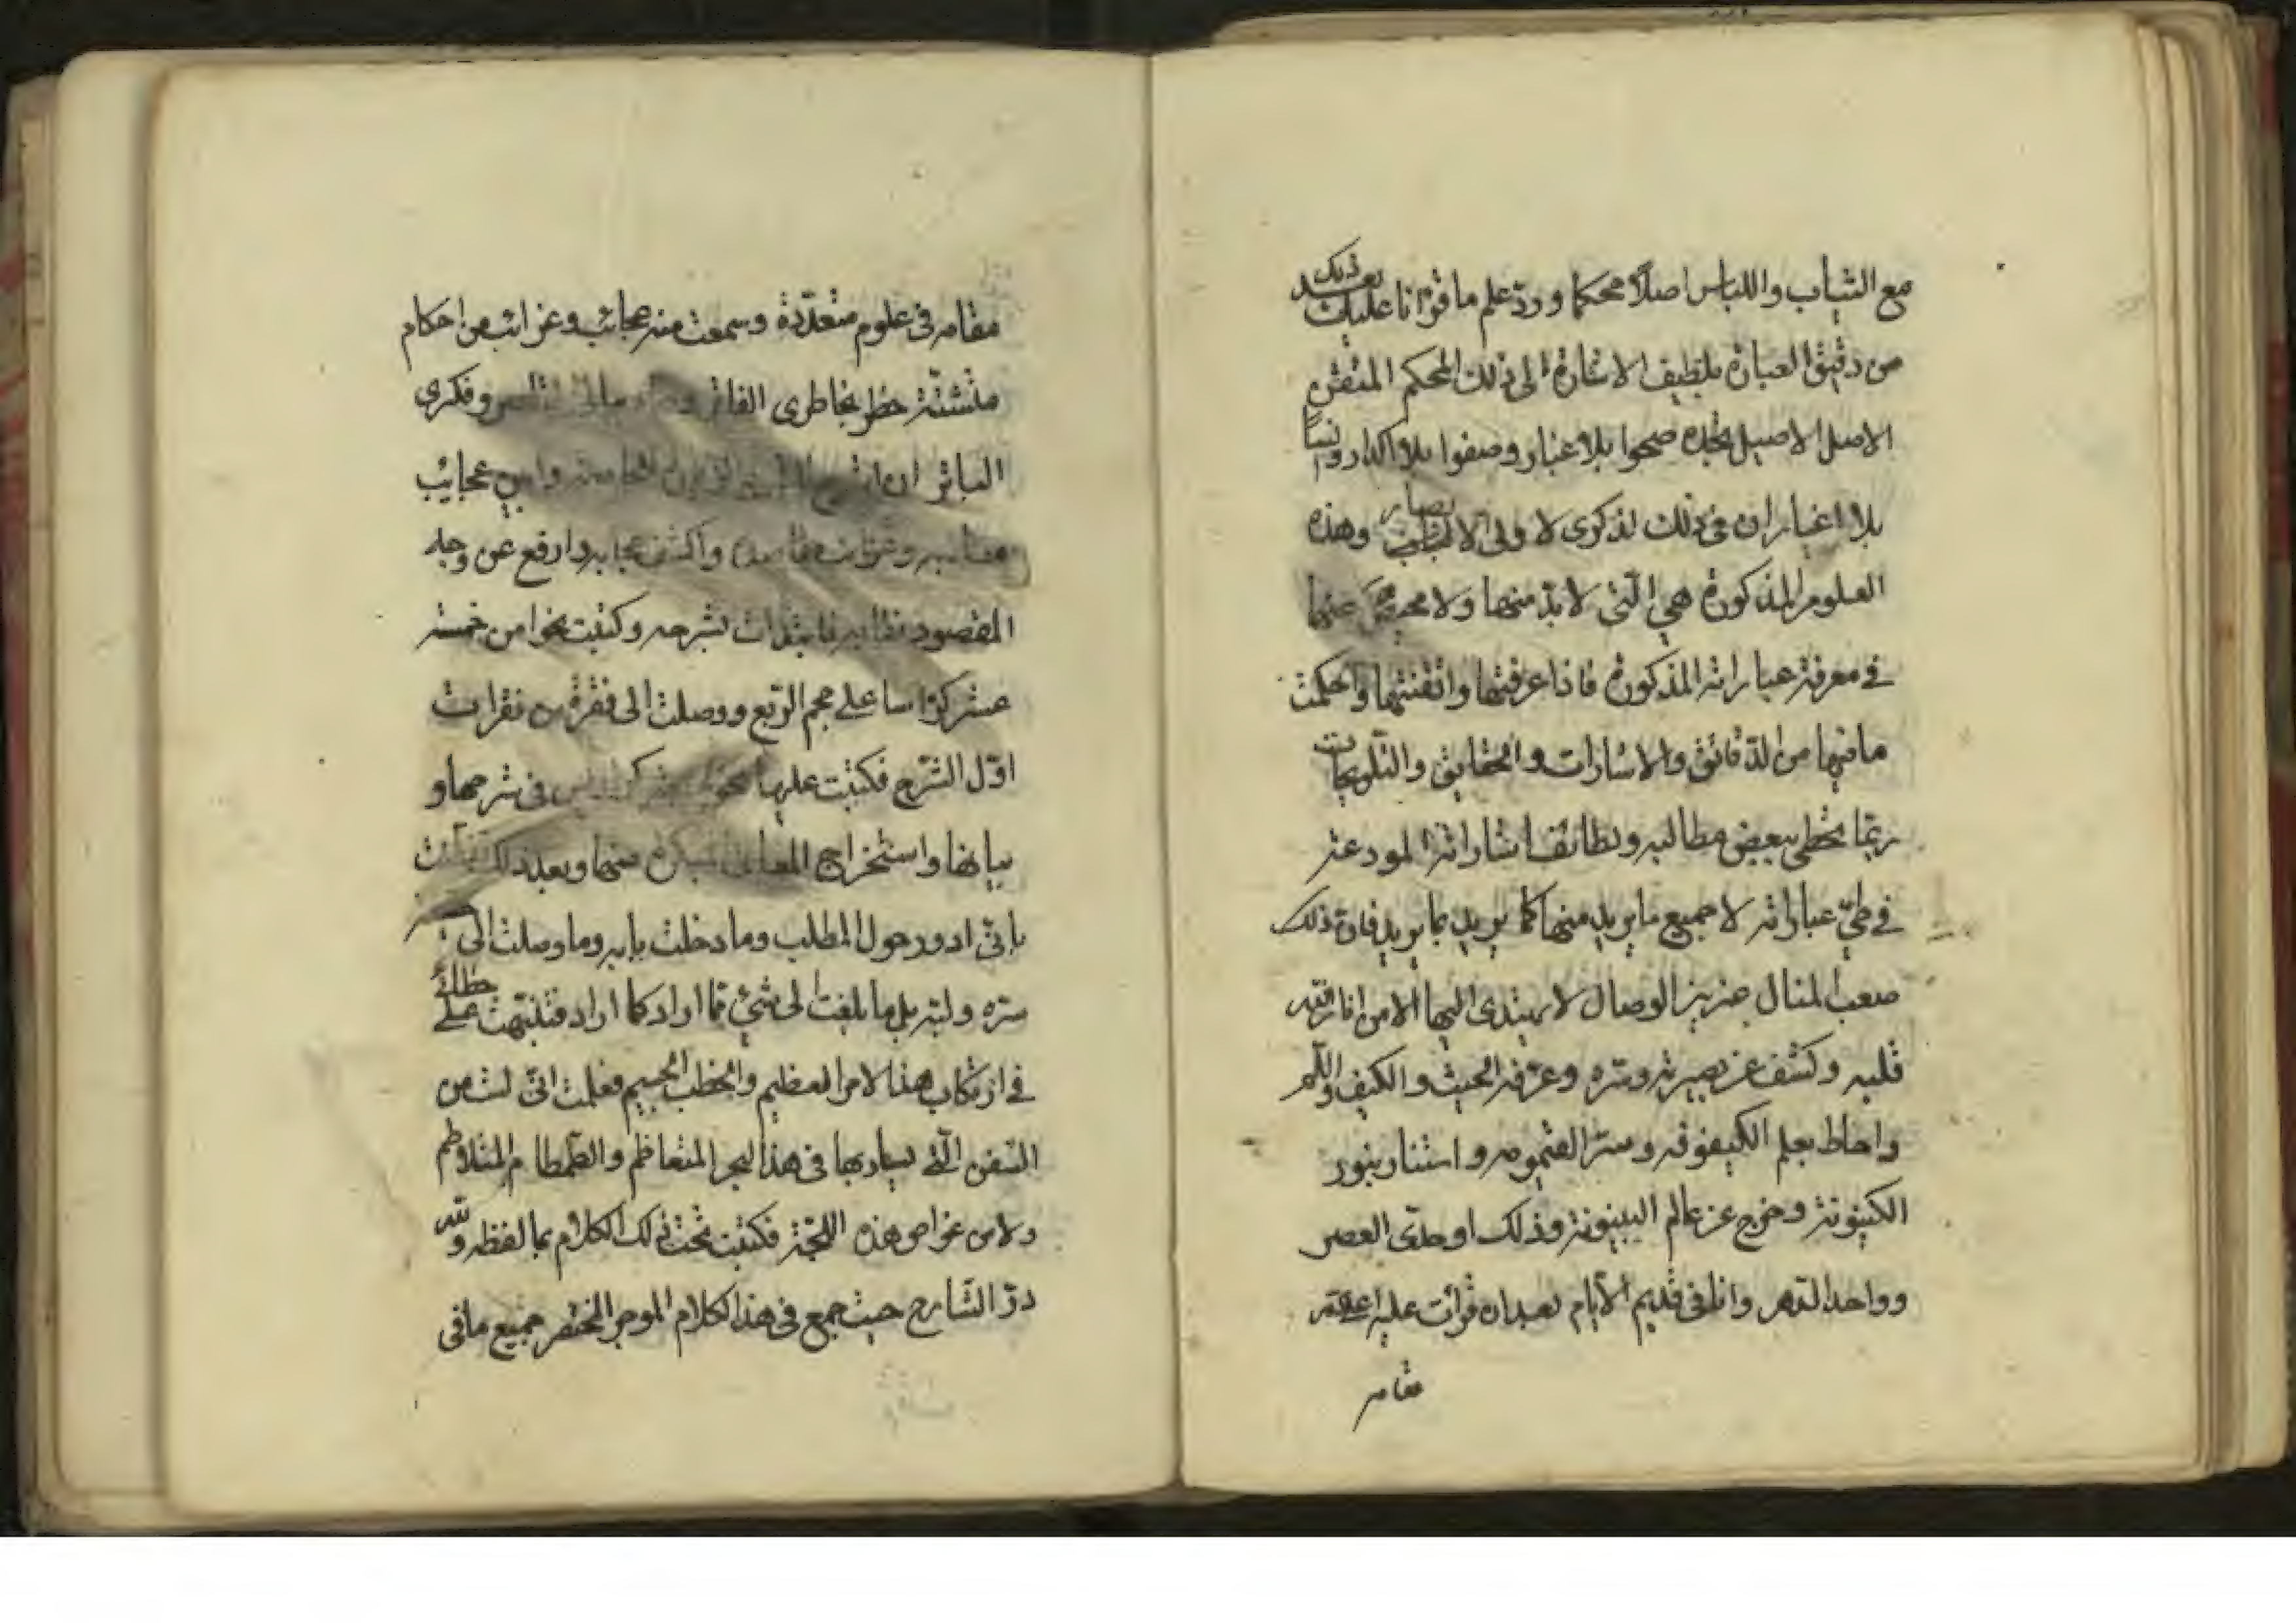 مع الشباب واللباس اصلاً محكما وردّ علم ما قرانا عليك بعد ذلك
من دقيق العبارة بلطيف الاشارة الى ذلك المحكم المتقن
الاصل الاصيل تجده صحوا بلا غبار وصفوا بلا اكدار
بلا اغيار ان فى ذلك لذكرى لاولى الابصار وهذه
العلوم المذكورة هى الّتى لا بدّ منها ولا محيص عنها
فى معرفة عباراته المذكورة فاذا عرفتها واتقنتها واحكمت
ما فيها من الدّقائق والاشارات والحقايق والتّلويحات
ربّما تحظى ببعض مطالبه ولطائف اشاراته المودعة
فى طىّ عباراته لا جميع ما يريد منها كما يريد بما يريد فان ذلك
صعب المنال عزيز الوصال لا يهتدى اليها الا من انار الله
قلبه وكشف عن بصيرته وسرّه وعرّفه الحيث والكيف والكم
واحاط بعلم الكيفوفة وسرّ العتمومة واستنار بنور
الكينونة وخرج عن عالم البينونة وذلك اوحدىّ العصر
وواحد الدّهر وانا فى قديم الايّام بعد ان قرات عليه اعلى الله
مقامه
مقامه فى علوم متعدّدة وسمعت منه عجائب وغرائب من احكام
متشتّتة خطر بخاطرى الفاتر وفكرى
الباتر ان عجايب
وغرائب واكشف حجابه وارفع عن وجه
المقصود نقابه فابتدات بشرحه وكتبت نحوا من خمسة
عشر كرّاسا على حجم الرّبع ووصلت الى فقرة من فقرات
اوّل الشّرح فكتبت عليها فى شرحها و
بيانها واستخراج منها وبعد ذلك
بانّى ادور حول المطلب وما دخلت بابه وما وصلت الى
سرّه ولبّه بل ما بلغت الى شىء ممّا اراد كما اراد فتنبّهت على خطائى
فى ارتكاب هذا الامر العظيم والخطب الجسيم فعلمت انّى لست من
السّفن الّتى يسار بها فى هذا البحر المتعاظم والطّمطام المتلاطم
ولا من غواص هذه اللّجّة فكتبت تحت ذلك الكلام بما لفظه ولله
درّ الشّارح حيث جمع فى هذا الكلام الموجز المختصر جميع ما فى